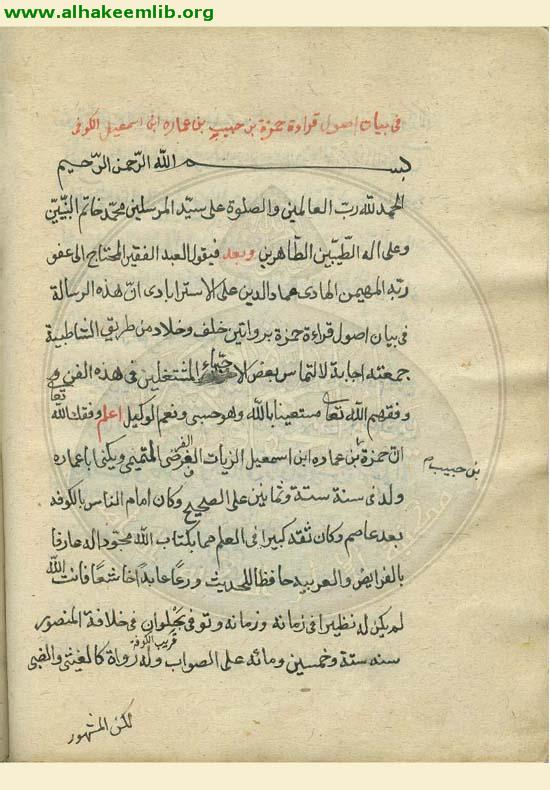 www.alhakeemlib.org
في بيان اصول قراءة حمزة بن حبيب بن عماره ابن اسمعيل الكوفى
بسم الله الرحمن الرحيم
الحمد لله رب العالمين والصلوة على سيد المرسلين محمد خاتم النبيين
وعلى اله الطيبين الطاهرين وبعد فيقول العبد الفقير المحتاج الى عفو
ربه المهيمن الهادى عماد الدين على الاسترابادى ان هذه الرسالة
فى بيان اصول قراءة حمزة بروايتين خلف وخلاد من طريق الشاطبية
جمعته اجابة لالتماس بعض الاحباء المشتغلين فى هذه الفن
وفقهم الله تعالى مستعينا بالله وهو حسبى ونعم الوكيل اعلم وفقك الله تعالى
ان حمزة بن عماره ابن اسمعيل الزيات الفرضى التميمى ويكنى با عماره
بن حبيب
ولد فى سنة ستة وثمانين على الصحيح وكان امام الناس بالكوفه
بعد عاصم وكان ثقه كبيرا فى العلم بكتاب الله مجودا له عارفا
بالفرايض والعربيه حافظا للحديث ورعا عابدا خاشعا قانت الله
لم يكن له نظيرا فى زمانه وتوفى بحلوان فى خلافة المنصور
قريب الكوفة
سنه ستة وخمسين ومائه على الصواب وله رواة والضبى
لكن المشهور